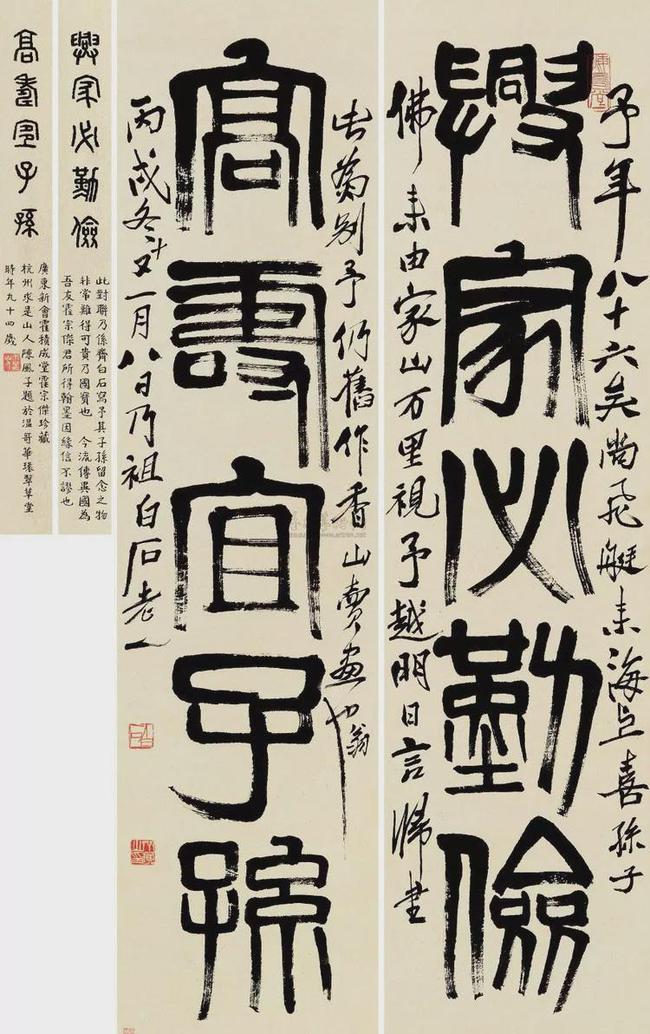 予年八十六矣尚飛艇来海上喜孫子
興家必勤儉
佛来由家山万里視予越明日言歸書
此為别予仍舊作香山賣画翁
高壽宜子孫
丙戌冬十又一月八日乃祖白石老人
興家必勤儉
此對聯乃係齊白石寫予其子孫留念之物
非常難得可貴乃國寶也 今流傳異國為
吾友霍宗傑君所得翰墨因緣信不謬也
高壽宜子孫
廣東新會霍積成堂霍宗傑珍藏
杭州求是山人陳風子題於温哥華臻翠草堂
時年九十四歲